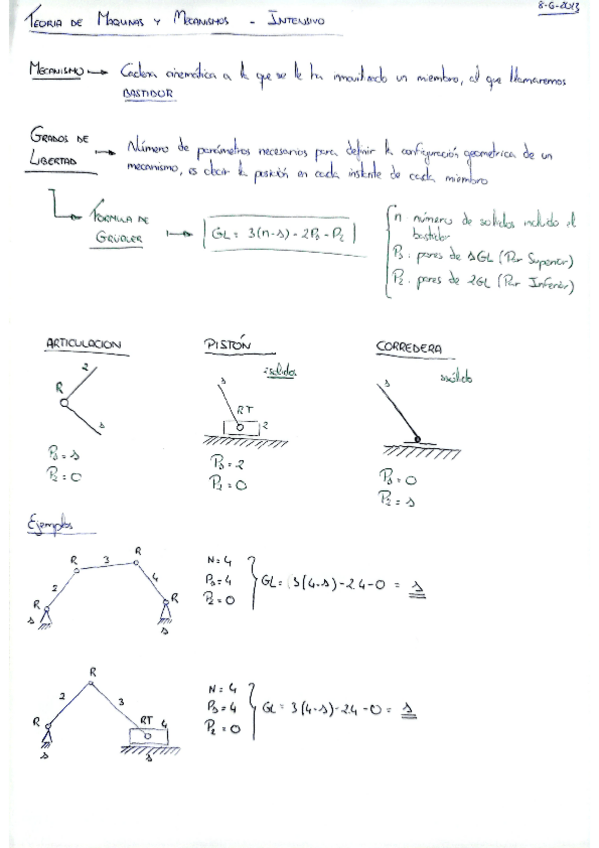 TEORIA DE MAQUINAS Y MECANISMOS - INTENSIVO
8-6-2013
MECANISMO → Cadena cinemática a la que se le ha inmovilizado un miembro, al que llamaremos
BASTIDOR
GRADOS DE
LIBERTAD → Número de parámetros necesarios para definir la configuración geometrica de un
mecanismo, es decir la posición en cada instante de cada miembro
FORMULA DE
GRÜBLER → GL = 3(n-1) - 2P1 - P2
n: número de solidos incluido el
bastidor
P1: pares de 1GL (Par Superior)
P2: pares de 2GL (Par Inferior)
ARTICULACION
PISTÓN
CORREDERA
2
R
1
P1 = 1
P2 = 0
1
RT
2
P1 = 2
P2 = 0
1
P1 = 0
P2 = 1
Ejemplos
R 3 R
2 4
R R
1 1
N = 4
P1 = 4
P2 = 0
GL = 3(4-1) - 2·4 - 0 = 1
R
2 3
R RT 4
1 1
N = 4
P1 = 4
P2 = 0
GL = 3(4-1) - 2·4 - 0 = 1